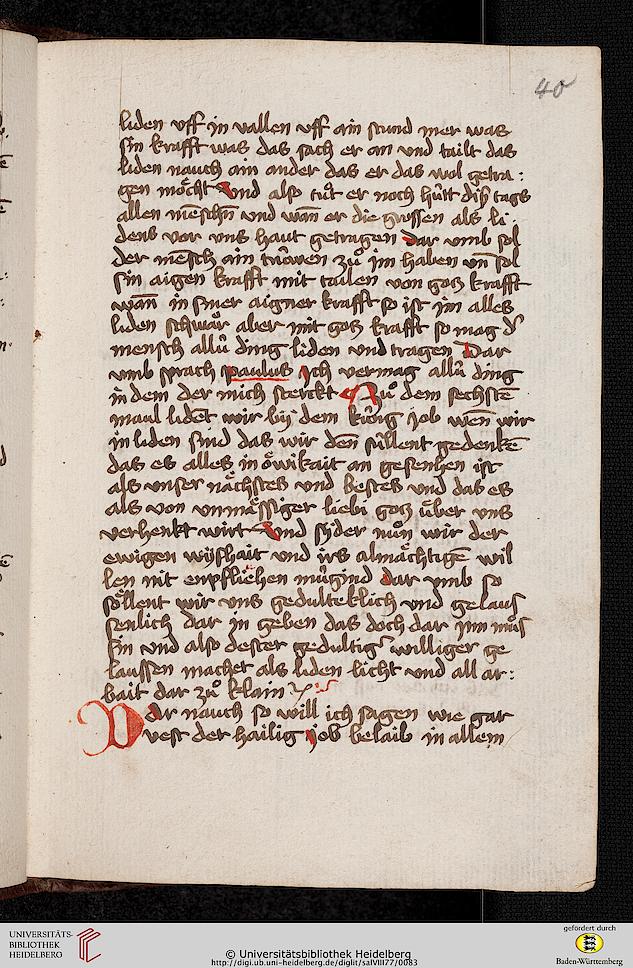 40
liden vff in vallen vff ain stund mer was
sin krafft was das sach er an vnd tailt das
liden nauch ain ander das er das wol getra:
gen möcht Vnd also tůt er noch hütt diß tags
allen mēschn vnd wān er die grossen als li:
dens vor vns haut getragen dar vmb sol
der mēsch ain trüwen zů im haben vn̄ sol
sin aigen krafft mit tailen von gotz krafft
wān in siner aigner krafft so ist im alles
liden schwär aber mit gotz krafft so mag d'
mensch allü ding liden vnd tragen Dar
vmb sprach paulus ich vermag allü ding
in dem der mich sterckt Zů dem sechstē
maul lident wir bij dem küng job wen̄ wir
in liden sind das wir den̄ süllent gedenkē
das es alles in öwikait an gesenhen ist
als vnser nächstes vnd bestes vnd das es
als von vnmässiger liebi gotz über vns
verhenkt wirt Vnd syder nun wir der
ewigen wijshait vnd irs almächtigē wil
len nit enpfliehen mügind dar vmb so
söllent wir vns gedulteklich vnd gelaus
senlich dar in geben das doch dar jnn můs
sin vnd also dester gedultig' williger ge
laussen machet als liden licht vnd all ar:
bait dar zů klain
Dar nauch so will ich sagen wie gar
vest der hailig job belaib in allem
UNIVERSITÄTS-
BIBLIOTHEK
HEIDELBERG
© Universitätsbibliothek Heidelberg
http://digi.ub.uni-heidelberg.de/diglit/salVIII77/0083
gefördert durch
Baden-Württemberg